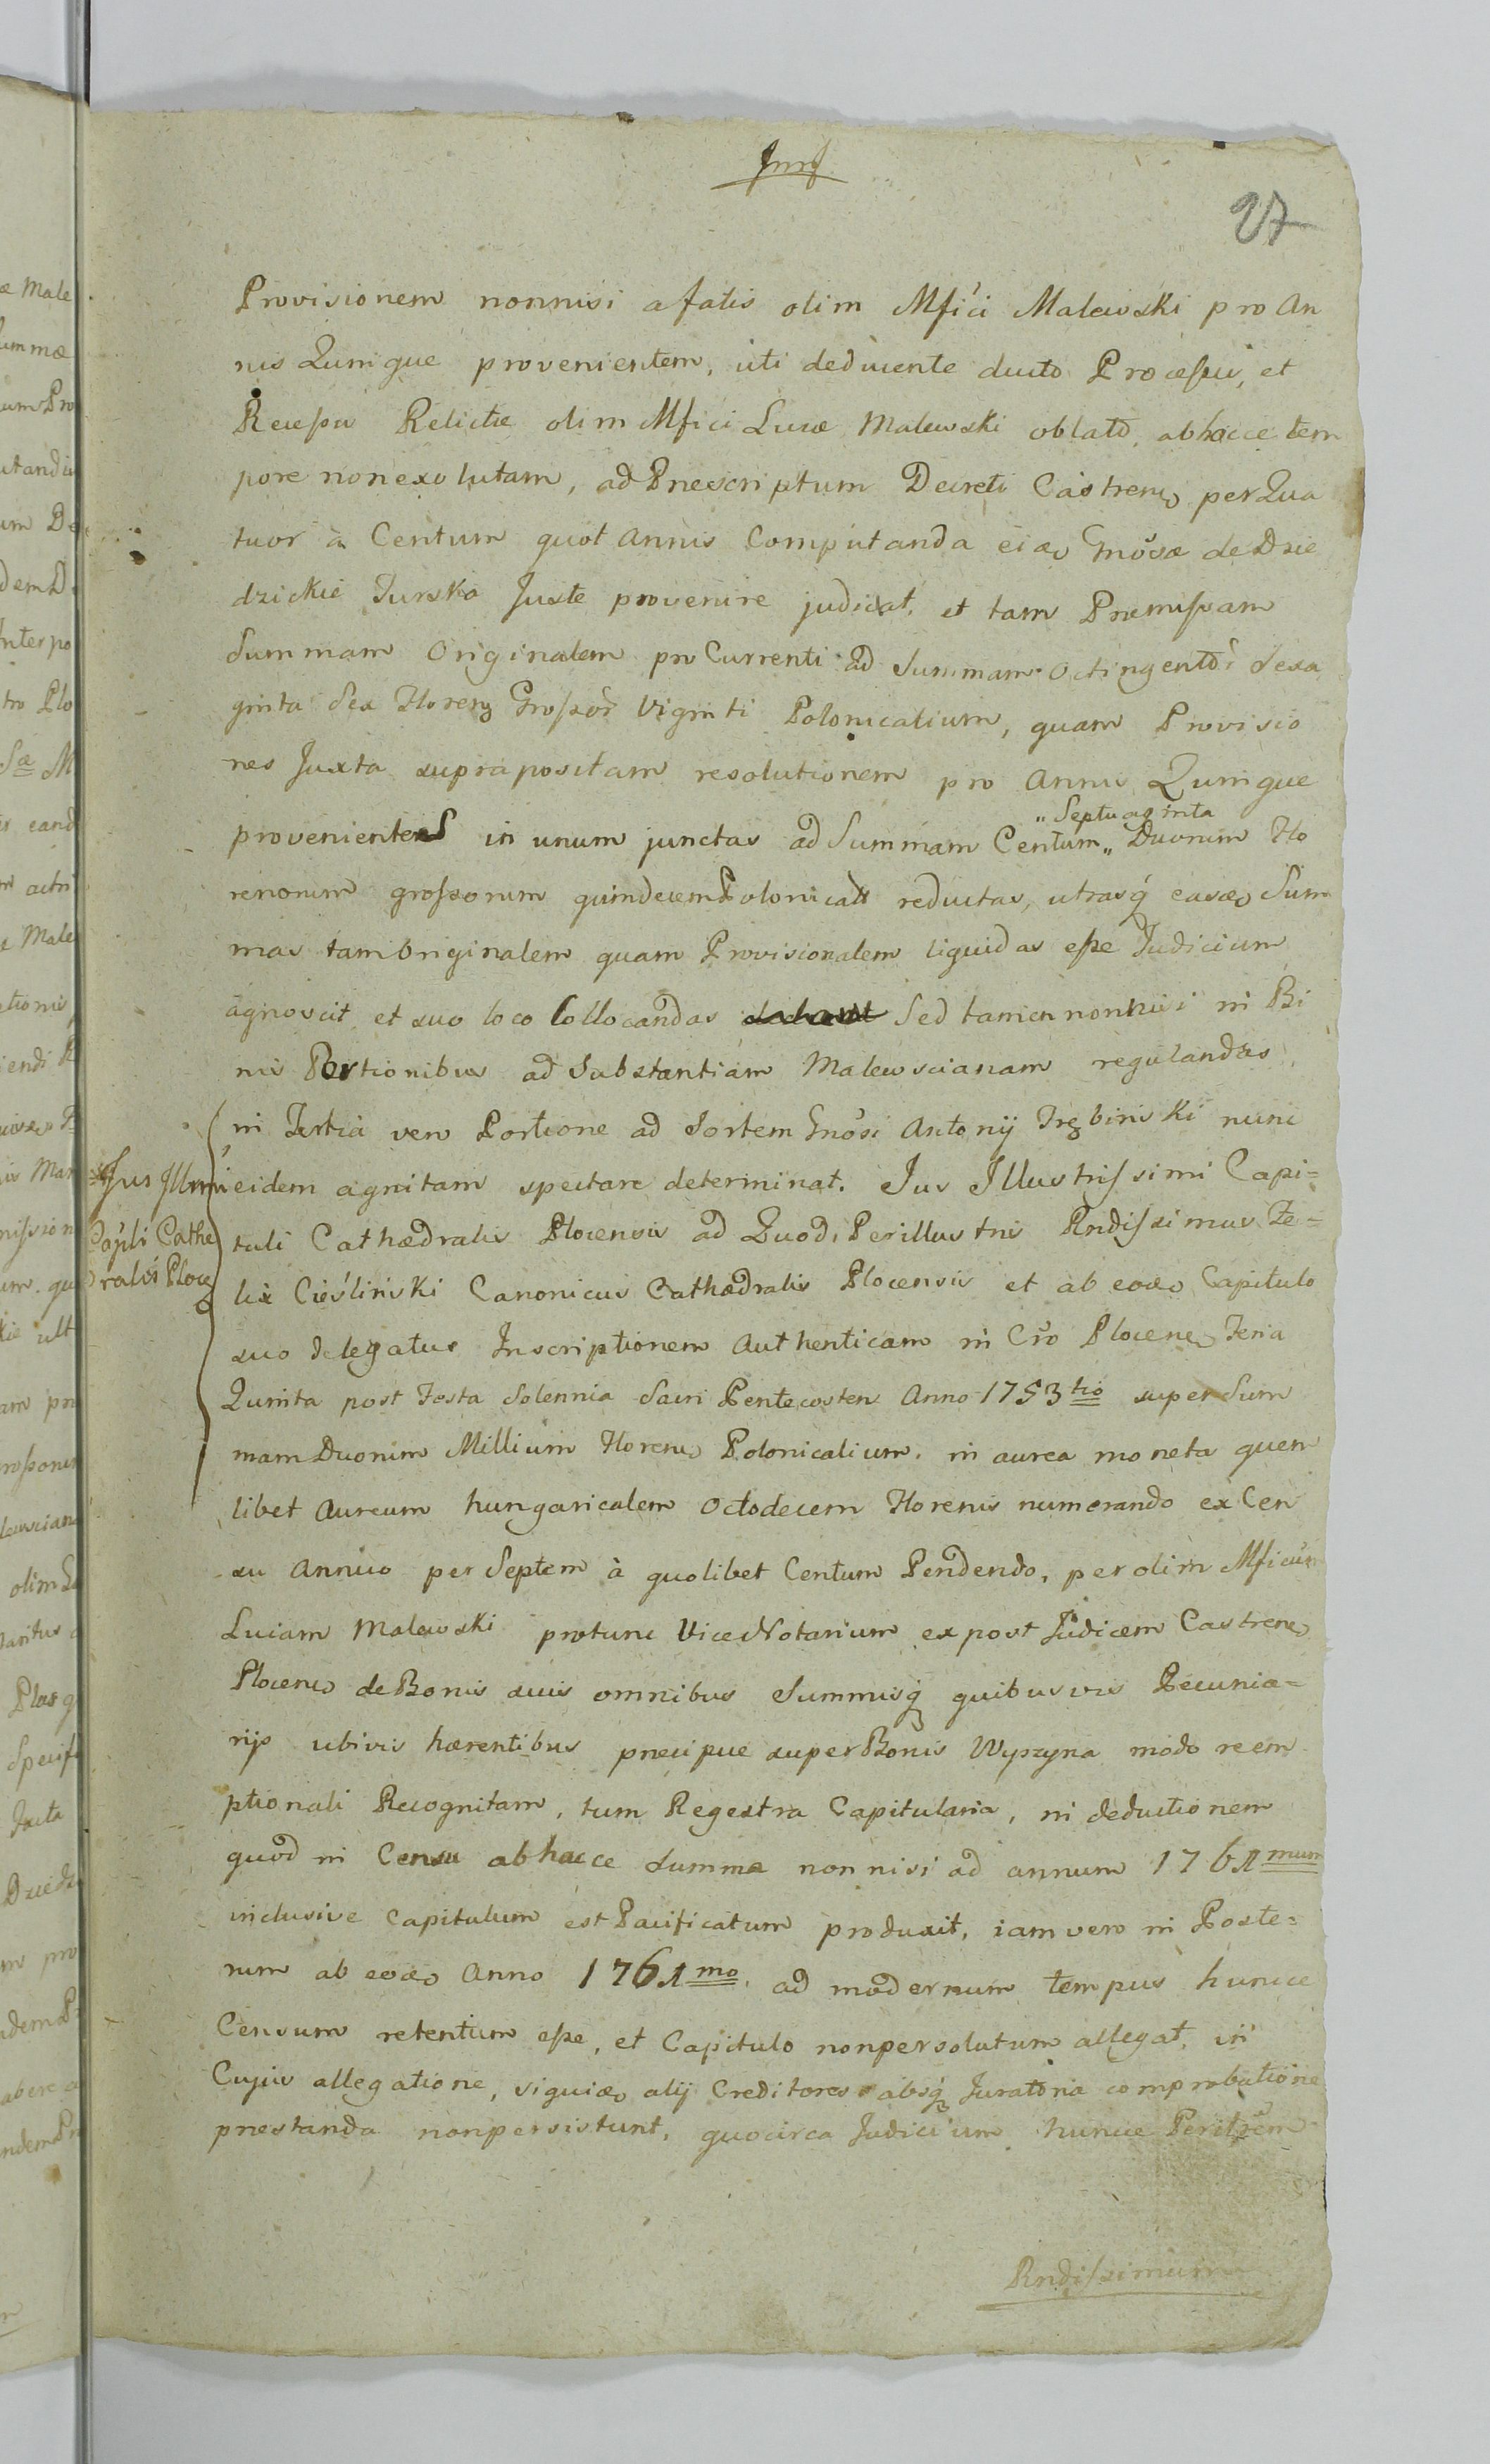 27
Provisionem nonnisi a fatis olim Mfici Malewski pro An
nis Quinque provenientem, uti deducente ducto Processu, et
Recessu Relictæ olim Mfici Lucæ Malewski oblato, ab hocce tem
pore non exolutam, ad Præscriptum Decreti Castrens per Qua
tuor à Centum quot Annis Computanda Gnosæ de Dzie
dzickie Turska Juste provenire judicat, et tam Præmissam
Summam Originalem pro Currenti ad Summam Octingentor Sexa
ginta Sex Floren Grossor Viginti Polonicalium, quam Provisio
nes Juxta suprapositam resolutionem pro Annis Quinque
provenientes in unum junctas ad Summam Centum „Septuaginta„ Duorum Flo
renorum grossorum quindecem Polonical reductas, utrasq easd Sum
mas tam Originalem quam Provisionalem liquidas esse Judicium
agnoscit et suo loco Collocandas Sed tamen nonnisi in Bi
nis Portionibus ad Substantiam Malewscianam regulandas
in Tertia vero Portione ad Sortem Gnosi Antonij Trębinski nunc
eidem agnitam spectare determinat. Jus Illustrissimi Capi=
Jus Illmi
Capli Cathe
dralis Ploce
tuli Cathædralis Plocensis ad Quod, Perillustris Rndissimus Fe=
lix Cieśliński Canonicus Cathædralis Plocensis et ab eod Capitulo
suo delegatus Inscriptionem Authenticam in Cro Plocens Feria
Quinta post Festa Solennia Sacri Pentecosten Anno 1753tio super Sum
mam Duorum Millium Floren Polonicalium, in aurea moneta quem
libet Aureum hungaricalem Octodecem Florenis numerando ex Cen
su Annuo per Septem à quolibet Centum Pendendo, per olim Mficum
Lucam Malewski protunc Vice Notarium ex post Judicem Castrens
Plocens de Bonis suis omnibus Summisq quibusvis Pecunia=
rijs ubivis hærentibus præcipue super Bonis Wyszyna modo reem
ptionali Recognitam, tum Regestra Capitularia, in deductionem
quod in Censu ab hacce Summa nonnisi ad annum 1761mum
inclusive Capitulum est Pacificatum produxit, iam vero in Poste=
rum ab eod Anno 1761mo ad modernum tempus huncce
Censum retentum esse, et Capitulo non persolutum allegat, in
Cujus allegatione, siquid alij Creditores absq Juratoria comprobatione
præstanda non persistunt, quocirca Judicium huncce Perillrem
Rndissimum